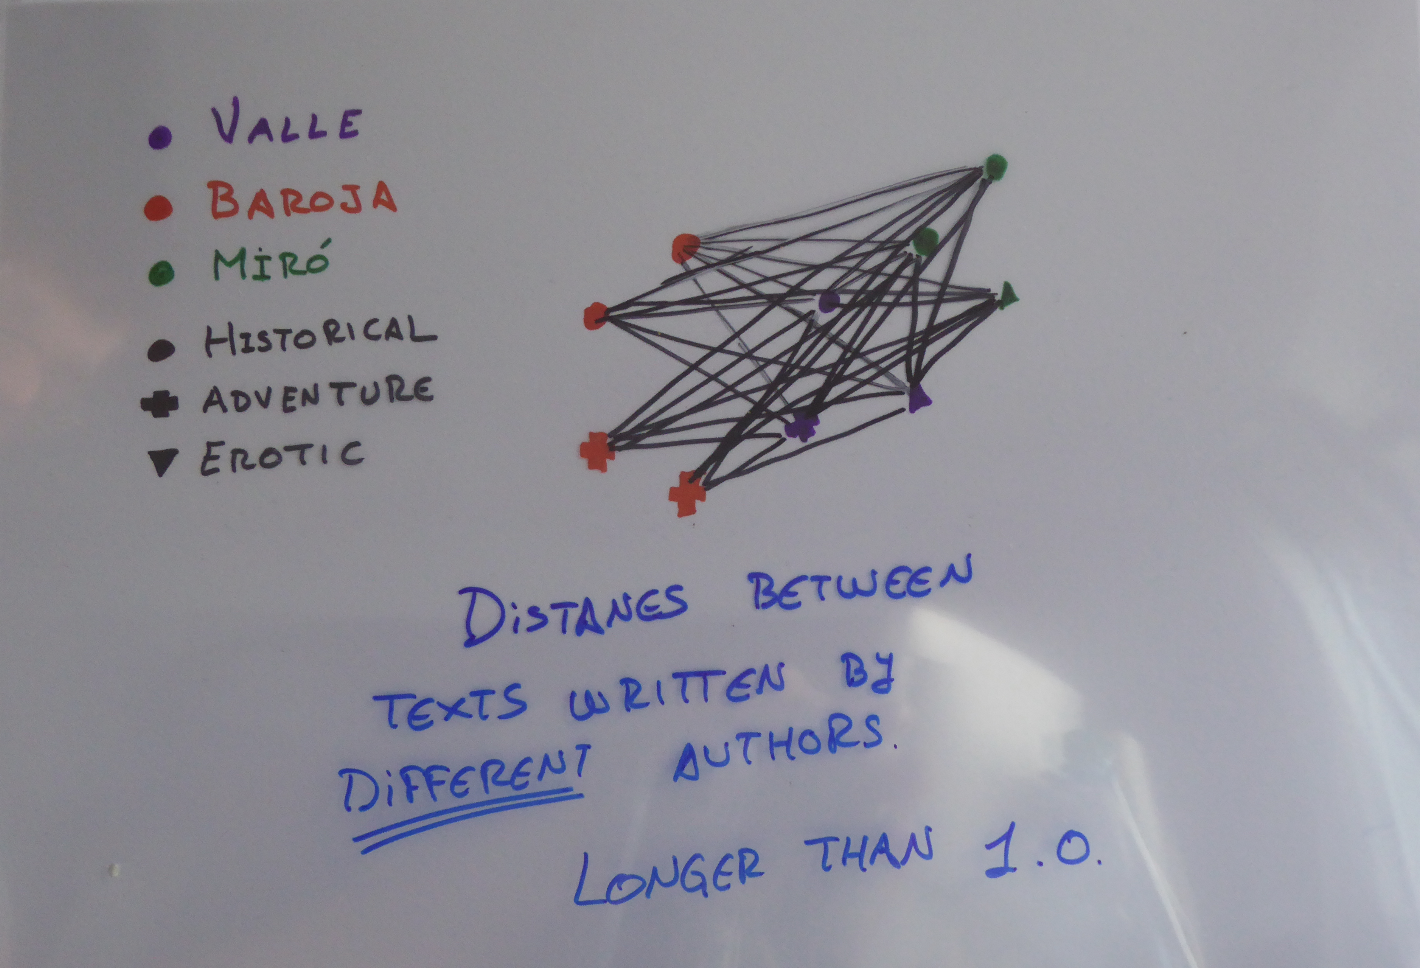 VALLE
BAROJA
MIRÓ
HISTORICAL
ADVENTURE
EROTIC
DISTANES BETWEEN
TEXTS WRITTEN BY
DIFFERENT AUTHORS.
LONGER THAN 1.0.